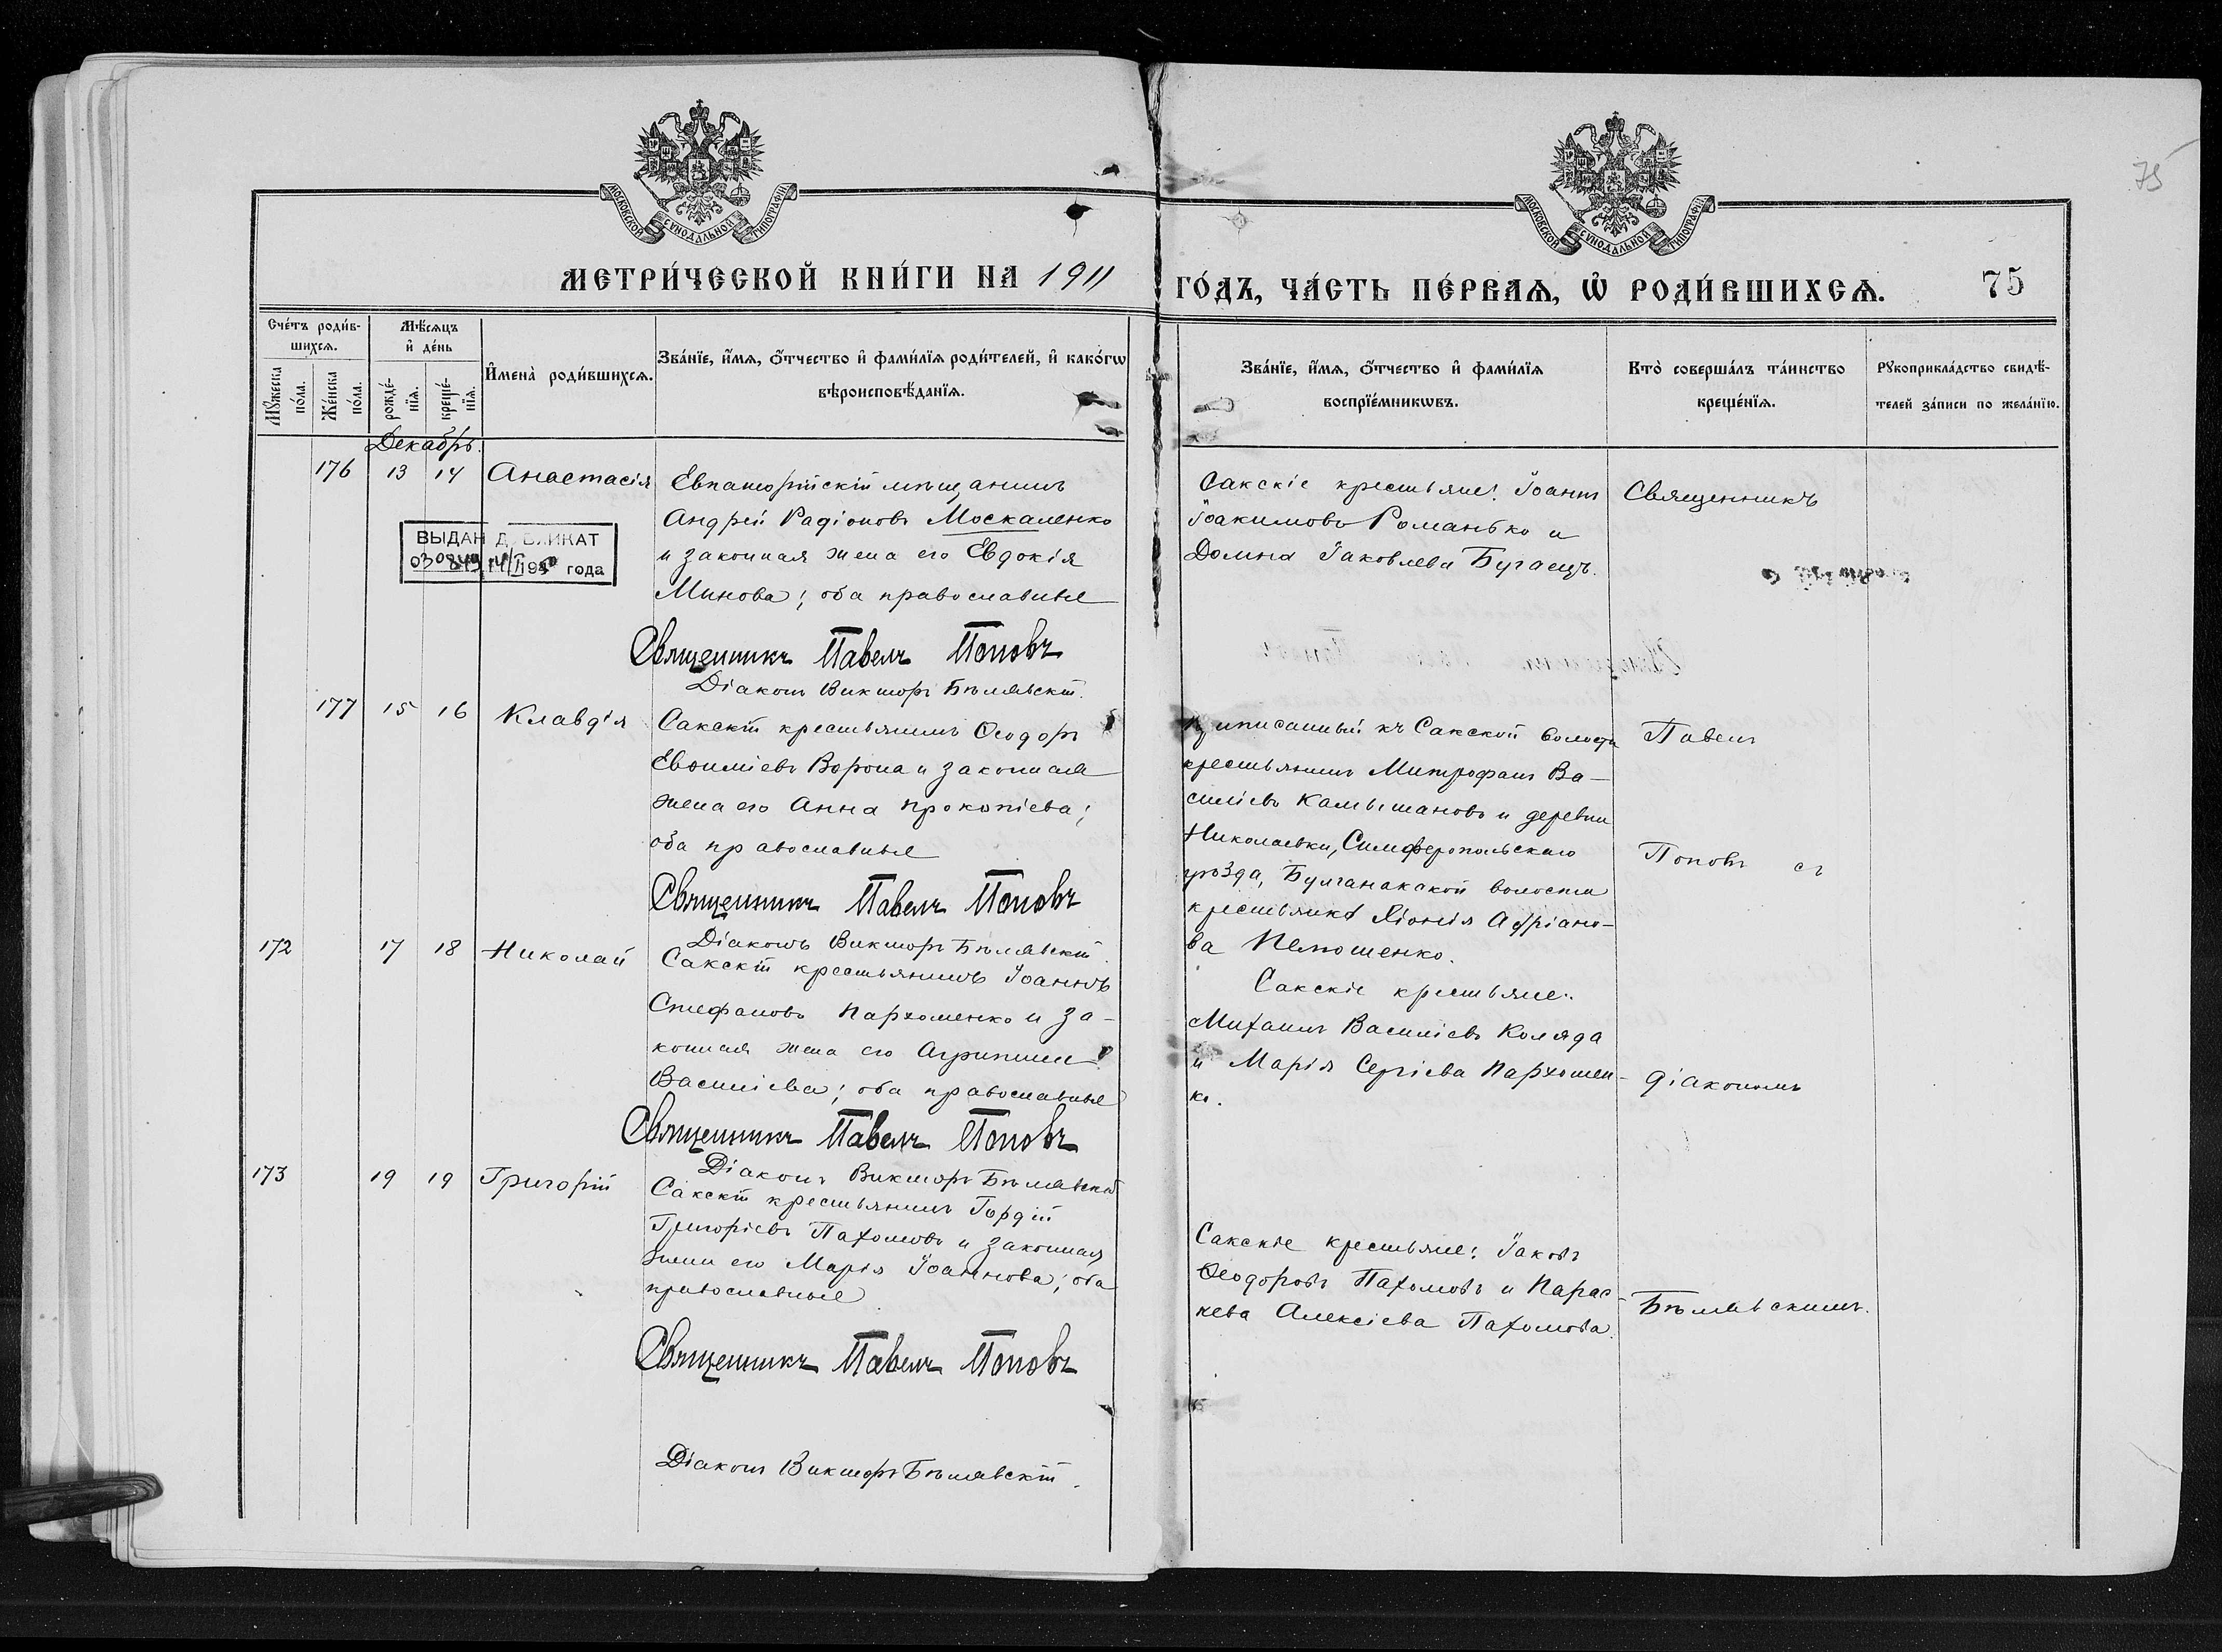 75
МОСКОВСКОЙ СѴНОДАЛЬНОЙ ТИПОГРАФІИ
МОСКОВСКОЙ СѴНОДАЛЬНОЙ ТИПОГРАФІИ
МЕТРИ́ЧЕСКОЙ КНИ́ГИ НА 1911
ГО́ДЪ, ЧА́СТЬ ПЕ́РВАѦ, Ѡ҆ РОДИ́ВШИХСѦ. 75
Сче́тъ роди́в-
шихсѧ.
Мꙋ́жеска по́ла.
Же́нска по́ла.
Мѣ́сѧцъ
и҆ де́нь
рожде́-
нїѧ.
креще́-
нїѧ.
И҆мена̀ роди́вшихсѧ.
Зва́нїе, и҆́мѧ, ѻ҆́тчество и҆ фами́лїѧ роди́телей, и҆ како́гѡ
вѣроисповѣ́данїѧ.
Зва́нїе, и҆́мѧ, ѻ҆́тчество и҆ фами́лїѧ
воспрїе́мникѡвъ.
Кто̀ соверша́лъ та́инство
креще́нїѧ.
Рꙋкоприкла́дство свидѣ́-
телей за́писи по жела́нїю.
Декабрь.
176 13 14 Анастасія
Евпаторійскій мѣщанинъ
Андрей Радіоновъ Москаленко
и законная жена его Евдокія
Минова; оба православные
Священникъ Павелъ Поповъ
Діаконъ Викторъ Бѣлявскій.
ВЫДАН ДУБЛИКАТ
года
Сакскіе крестьяне: Іоаннъ
Іоакимовъ Романько и
Домна Іаковлева Бугаецъ.
Священникъ
177 15 16 Клавдія
Сакскій крестьянинъ Ѳеодоръ
Евѳиміевъ Ворона и законная
жена его Анна Прокопіева;
оба православные
Священникъ Павелъ Поповъ
Діаконъ Викторъ Бѣлявскій.
Приписанный къ Сакской волости
крестьянинъ Митрофанъ Ва-
силіевъ Камышановъ и деревни
Николаевки, Симферопольскаго
уѣзда, Булганакской волости
крестьянка Хіонія Адріано-
ва
Павелъ
Поповъ съ
172 17 18 Николай
Сакскій крестьянинъ Іоаннъ
Стефановъ Пархоменко и за-
конная жена его Агрипина
Василіева; оба православные
Священникъ Павелъ Поповъ
Діаконъ Викторъ Бѣлявскій
Сакскіе крестьяне:
Михаилъ Василіевъ Коляда
и Марія Сергіева Пархомен-
ко.
діакономъ
173 19 19 Григорій
Сакскій крестьянинъ Гордій
Григоріевъ Пахомовъ и законная
жена его Марія Іоаннова; оба
православные
Священникъ Павелъ Поповъ
Діаконъ Викторъ Бѣлявскій.
Сакскіе крестьяне: Іаковъ
Ѳеодоровъ Пахомовъ и Парас-
кева Алексіева Пахомова.
Бѣлявскимъ.